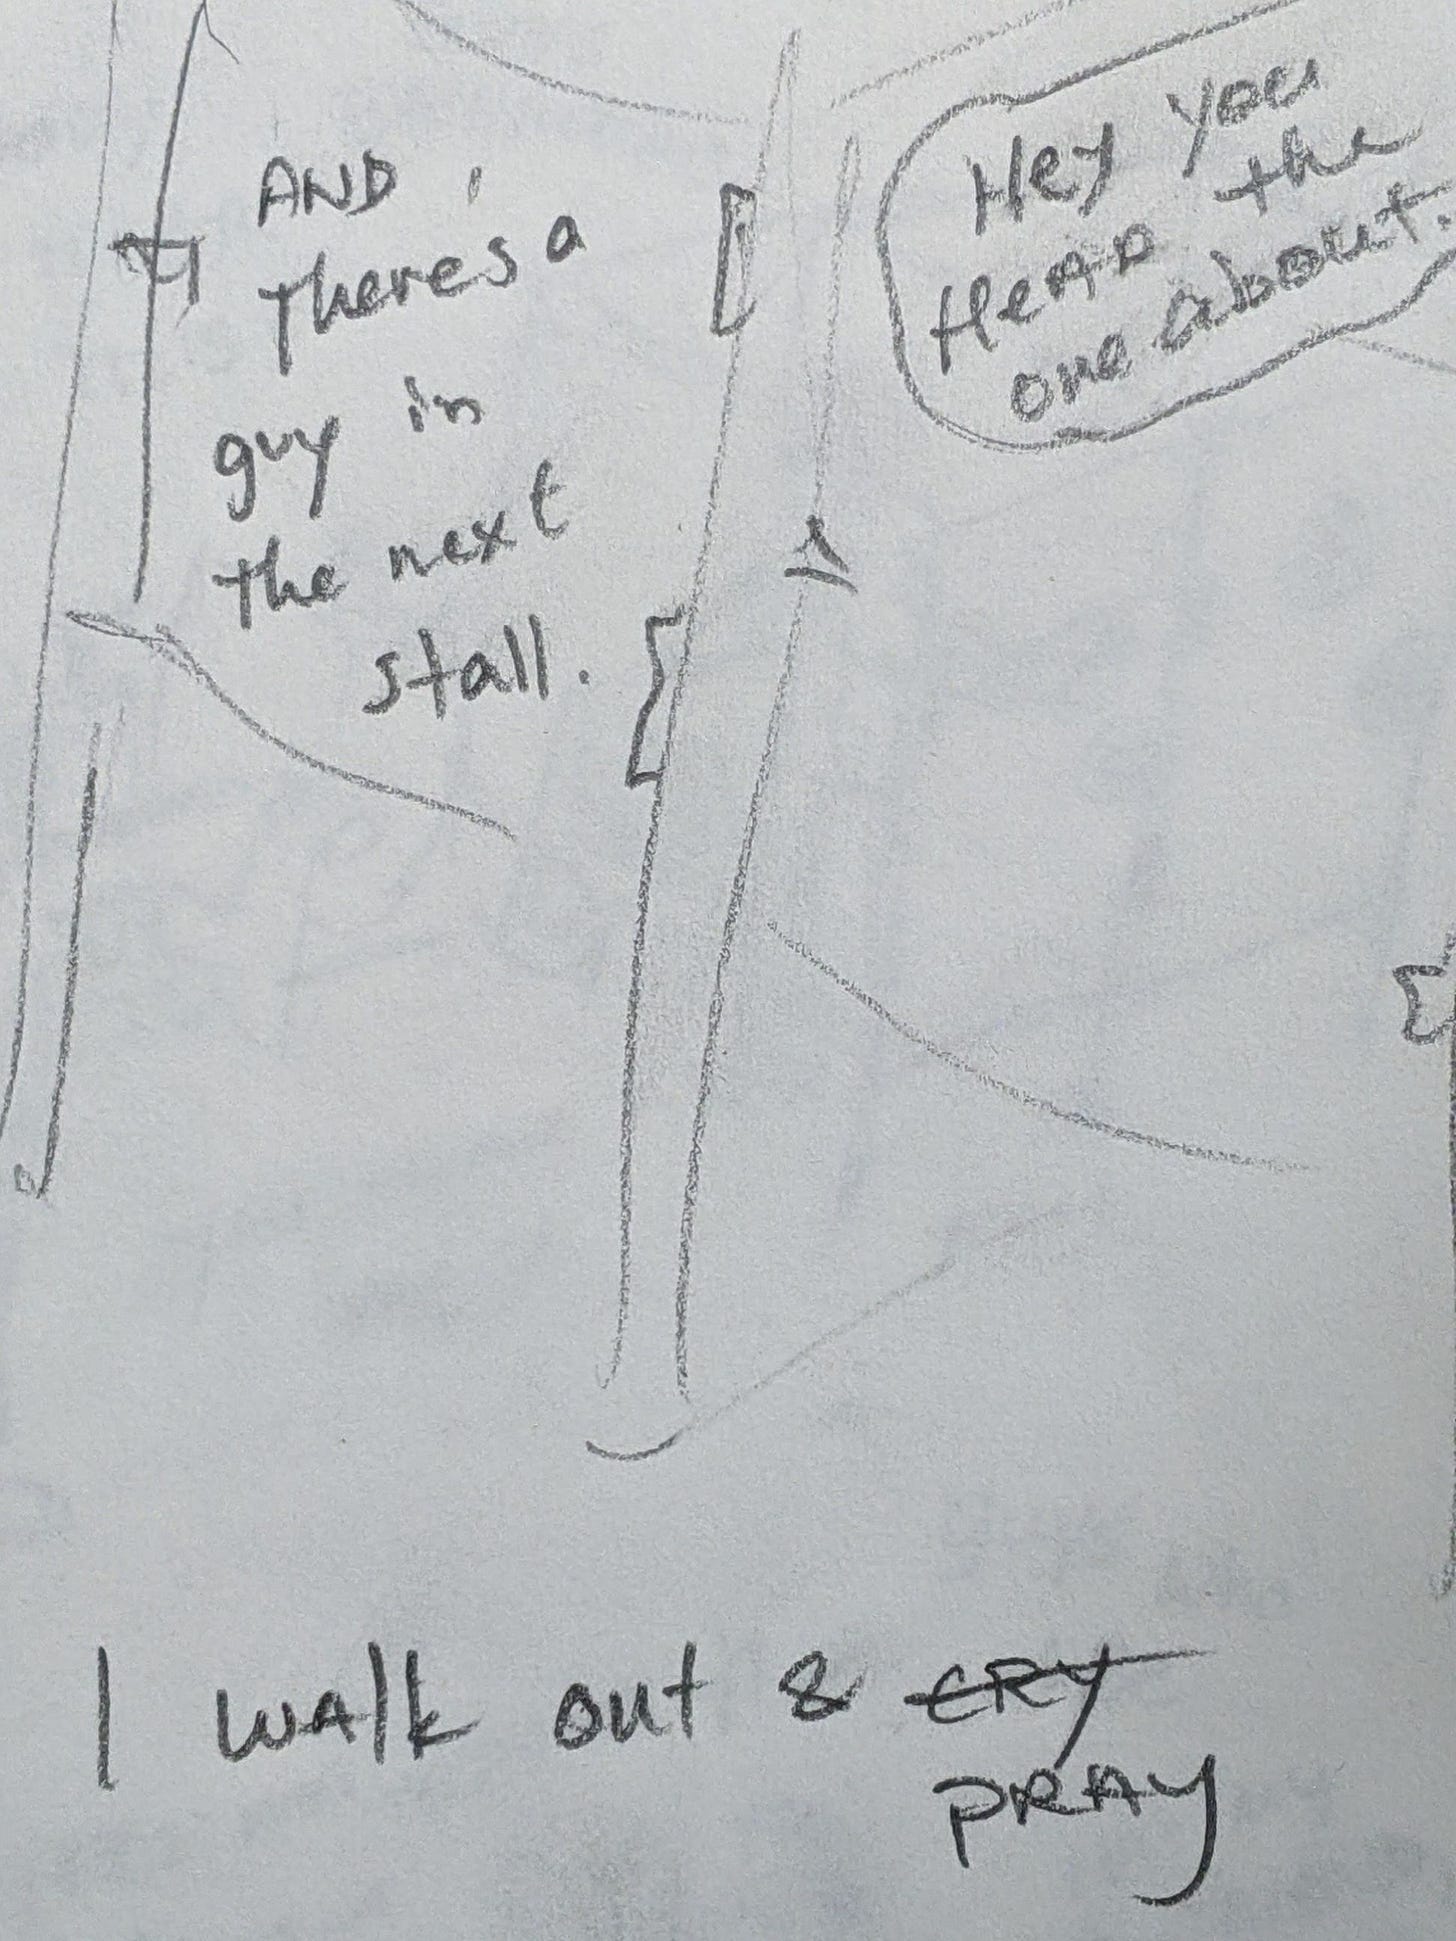 AND
there's a
guy in
the next
stall.
Hey you
HeAD the
one about.
I walk out & CRY
PRAY